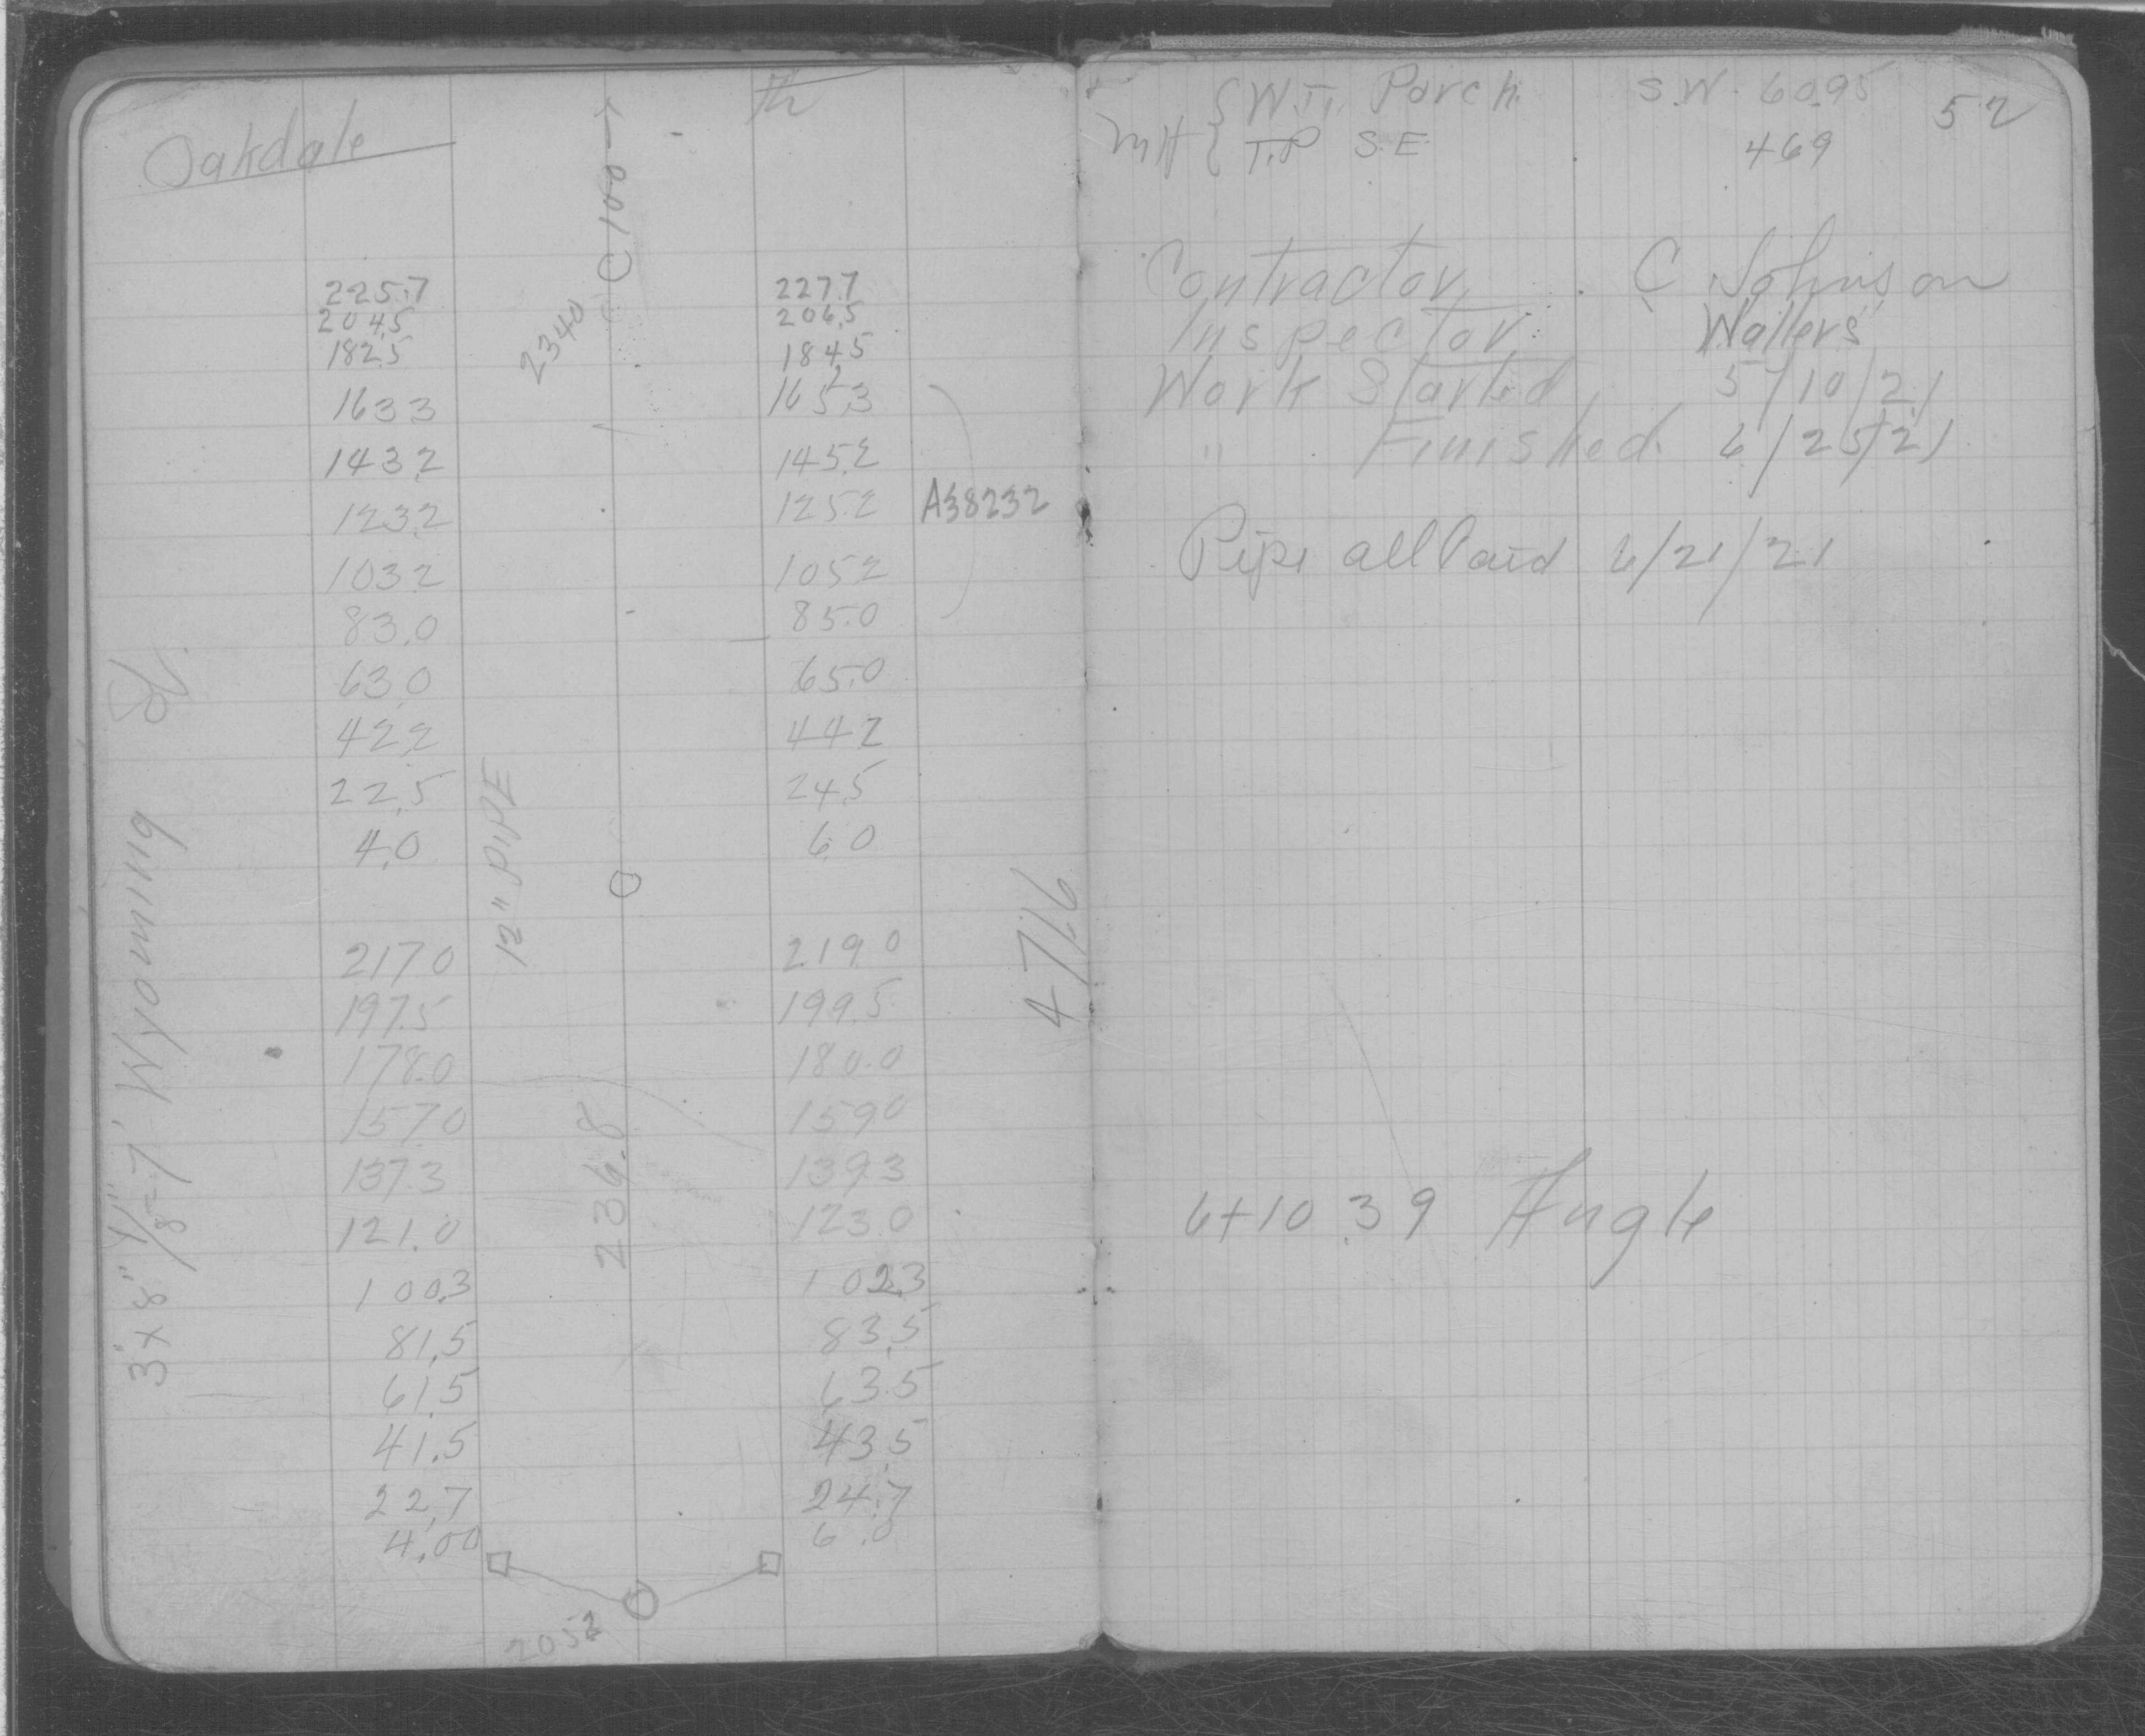 Oakdale
C 100
2340
225.7 227.7
204.5 206.5
182.5 184.5
163 3 165.3
143.2 145.2
123.2 125.2 A38232
103.2 105.2
83.0 85.0
63.0 65.0
42.2 44.2
22.5 24.5
4.0 6.0
12" PIPE
217.0 219.0
197.5 199.5
178.0 180.0
157.0 159.0
137.3 139.3
121.0 123.0
100.3 102.3
81.5 83.5
61.5 63.5
41.5 43.5
22.7 24.7
4.00 6.0
236.8
2052
3' x 8" 1/8-7' Wyoming St.
471.6
52
MH { W.T. Porch S.W. 60.95
T.P S.E. 469
Contractor C Johnson
Inspector Walters
Work Started 5/10/21
" Finished 6/25/21
Pipe all Laid 6/21/21
6+10.39 Angle